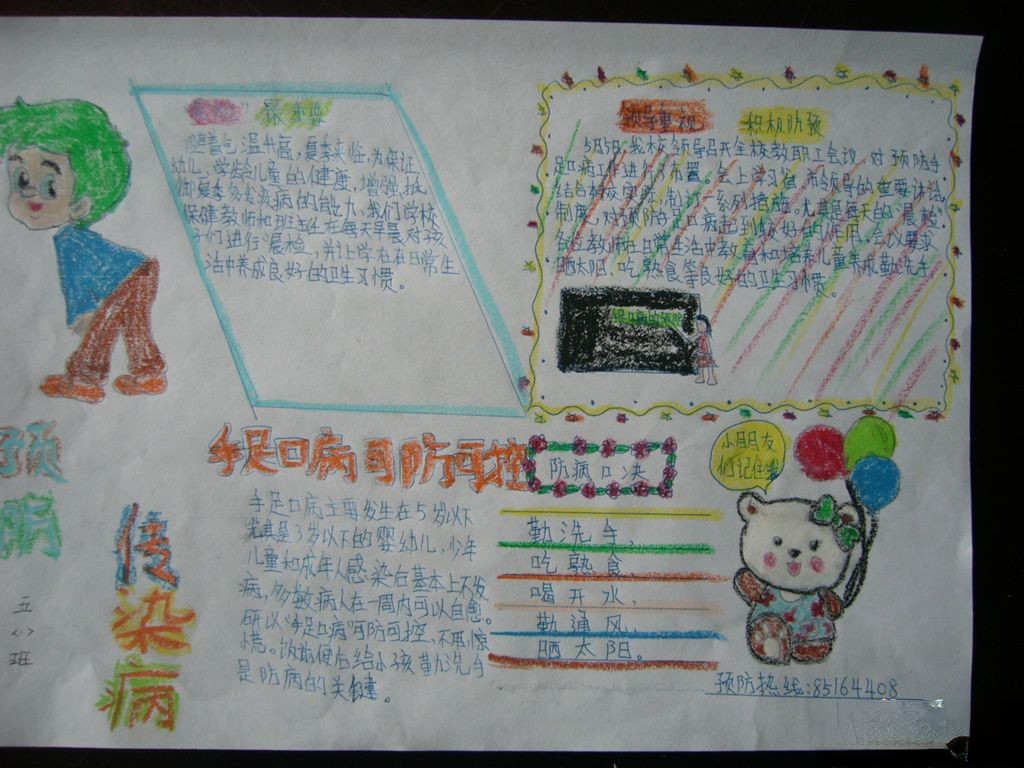 预
病
传
染
病
五
<1>
班
晨检
随着气温升高，夏季来临，为保证
幼儿、学龄儿童的健康，增强抵
御夏季多发疾病的能力，我们学校
保健教师和班主任在每天早晨对孩
子们进行晨检，并让学生在日常生
活中养成良好的卫生习惯。
领导重视 积极防预
5月5日，我校领导召开全校教职工会议，对预防手
足口病工作进行了布置，会上学习省、市领导的重要讲话，
结合本校实际，制订一系列措施。尤其是每天的“晨检”
制度，对预防手足口病起到较好的作用，会议要求
各位教师在日常生活中教育和培养儿童养成勤洗手，
晒太阳、吃熟食等良好的卫生习惯。
手足口病可防可控
手足口病主要发生在5岁以下
尤其是3岁以下的婴幼儿，少年
儿童和成年人感染后基本上不发
病，多数病人在一周内可以自愈。
所以“手足口病”可防可控，不用惊
慌。饭前便后给小孩勤洗手
是防病的关键。
防病口决
勤洗手，
吃熟食
喝开水，
勤通风，
晒太阳。
小朋友
们记住
预防热线：85164408